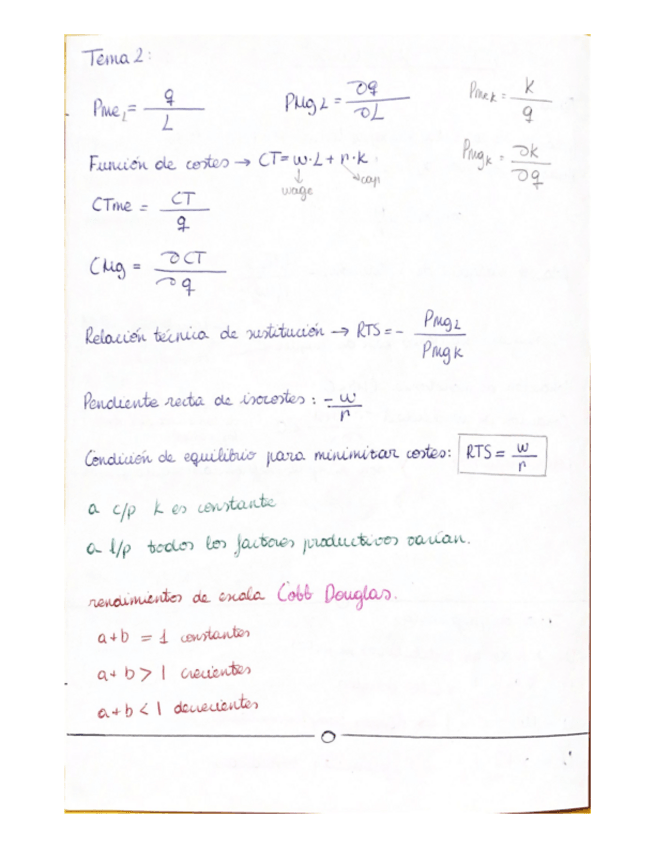 Tema 2:
Pme_L = q/L PMg L = ∂q/∂L Pme_K = K/q
Función de costes → CT = w·L + r·K Pmg_K = ∂K/∂q
↓ wage ↘ cap
CTme = CT/q
CMg = ∂CT/∂q
Relación técnica de sustitución → RTS = - PmgL/PmgK
Pendiente recta de isocostes: - w/r
Condición de equilibrio para minimizar costes: RTS = w/r
a c/p k es constante
a l/p todos los factores productivos varían.
rendimientos de escala Cobb Douglas.
a+b = 1 constantes
a+b > 1 crecientes
a+b < 1 decrecientes